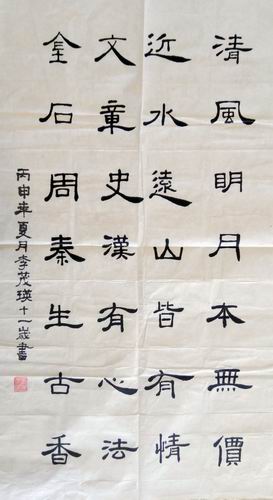 清風明月本無價
近水遠山皆有情
文章史漢有心法
金石周秦生古香
丙申年夏月李茂瑛十一歲書